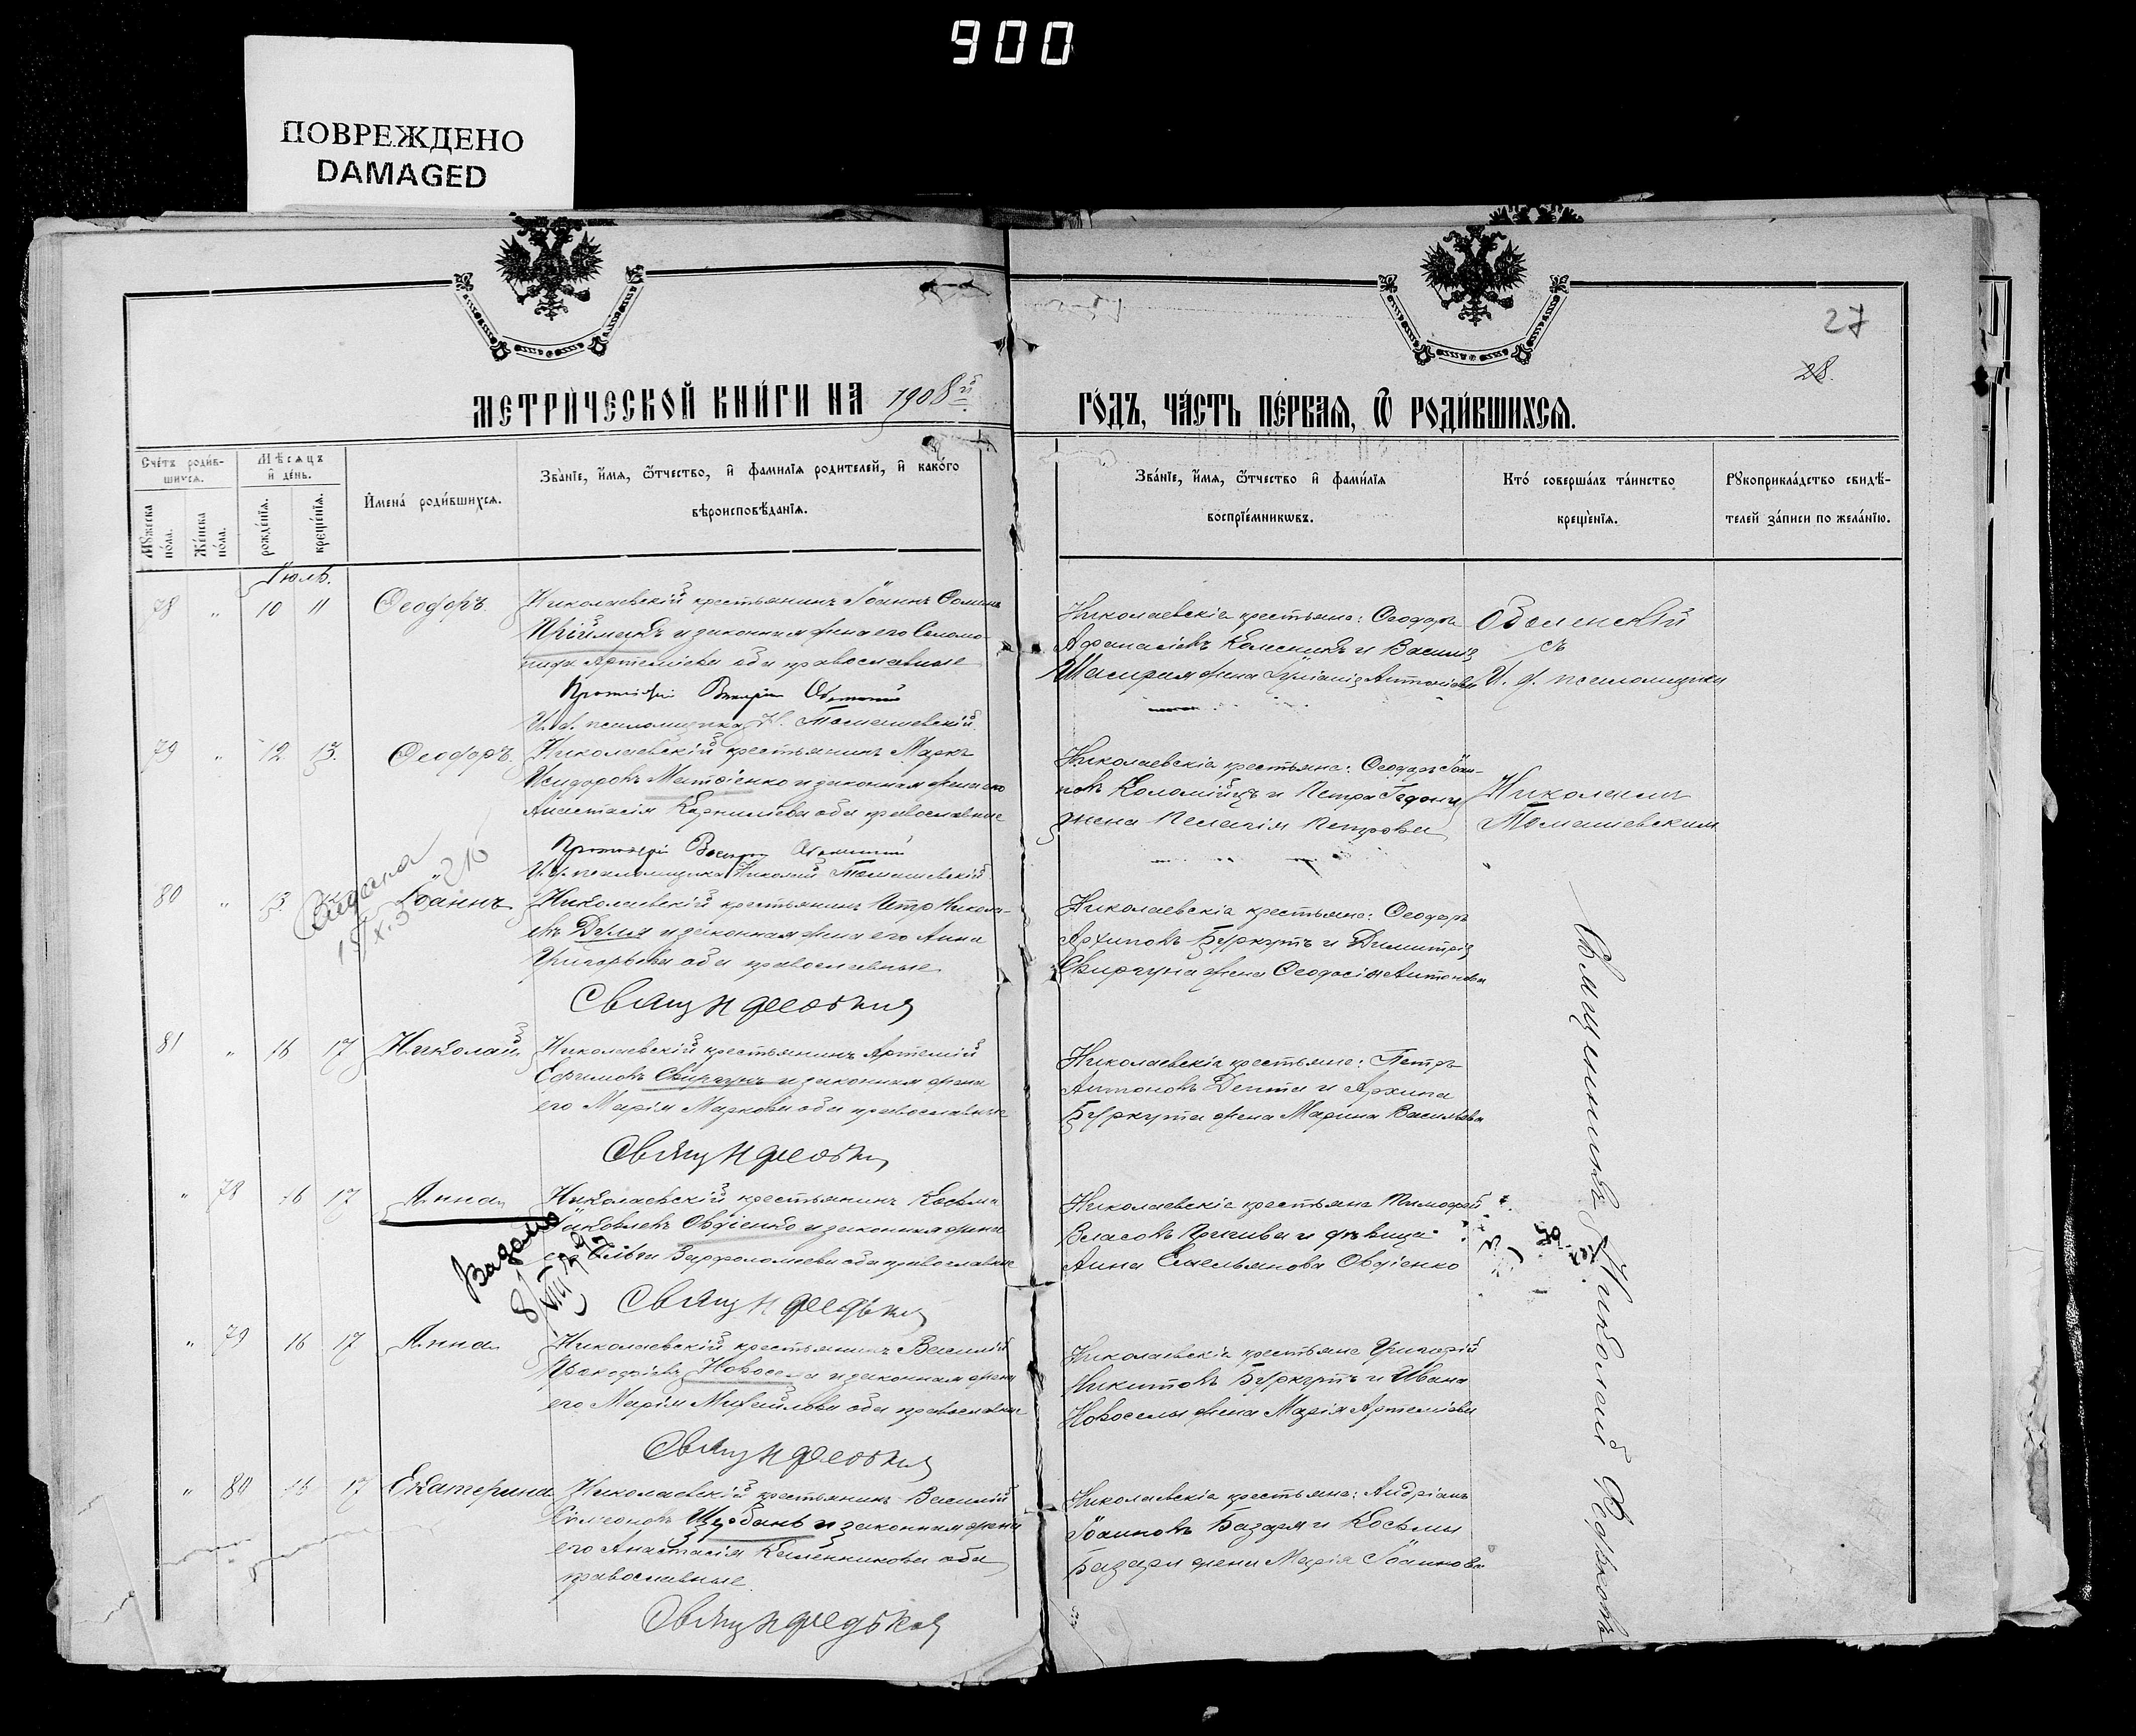 900
ПОВРЕЖДЕНО
DAMAGED
27
28.
МЕТРИЧЕСКОЙ КНИГИ НА 1908й
ГОДЪ, ЧАСТЬ ПЕРВАЯ, Ѿ РОДИВШИХСЯ.
Счетъ родившихся.
Мѣсяцъ и день.
Мужеска пола.
Женска пола.
рожденія.
крещенія.
Имена родившихся.
Званіе, имя, ѿтчество, и фамилія родителей, и какого
вѣроисповѣданія.
Званіе, имя, ѿтчество и фамилія
воспріемниковъ.
Кто совершалъ таинство
крещенія.
Рукоприкладство свидѣ-
телей записи по желанію.
Іюль.
78 " 10 11 Ѳеодоръ
Николаевскій крестьянинъ Іоаннъ Ѳоминъ
и законная жена его Соломо-
нида Артеміева оба православные
И. д. псаломщика Н. Томашевскій
Николаевскіе крестьяне: Ѳеодоръ
Афанасіевъ Колесникъ и Василія
жена Антоніева
Оболенскій
съ
И. д. псаломщика
79 " 12 13 Ѳеодоръ
Николаевскій крестьянинъ Маркъ
Исидоровъ Матвіенко и законная жена его
Анастасія Корниліева оба православные
И. д. псаломщика Николай Томашевскій
Николаевскіе крестьяне: Ѳеодоръ Іоан-
новъ Коломіецъ и Петра
жена Пелагія Петрова
Николаемъ
Томашевскимъ
80 " 13 Іоаннъ
Николаевскій крестьянинъ Петръ Никола-
евъ и законная жена его Анна
Григорьева оба православные
Свящ Н Федьков
Николаевскіе крестьяне: Ѳеодоръ
Архиповъ Буркутъ и Димитрія
Свиргуна жена Ѳеодосія Антонова
81 " 16 17 Николай
Николаевскій крестьянинъ Артемій
Ефимовъ Свиргунъ и законная жена
его Марія Маркова оба православные
Свящ Н Федьков
Николаевскіе крестьяне: Петръ
Антоновъ Депта и Архипа
Буркута жена Марина Васильева
" 78 16 17 Анна
Николаевскій крестьянинъ Косьма
Іаковлевъ Овдіенко и законная жена
его Ольга Варфоломеева оба православные
Свящ Н Федьков
Николаевскіе крестьяне Тимофей
Власовъ и дѣвица
Анна Емельянова Овдіенко
" 79 16 17 Анна
Николаевскій крестьянинъ Василій
Новосела и законная жена
его Марія Михайлова оба православные
Свящ Н Федьков
Николаевскіе крестьяне Григорій
Никитовъ Буркутъ и Ивана
Новоселы жена Марія Артеміева
" 80 16 17 Екатерина
Николаевскій крестьянинъ Василій
Симеоновъ Щербань и законная жена
его Анастасія Калинникова оба
православные
Свящ Н Федьков
Николаевскіе крестьяне: Андріанъ
Іоанновъ Базаря и Косьмы
Базари жена Марія Іоаннова
Священникъ Николай Ѳедьковъ